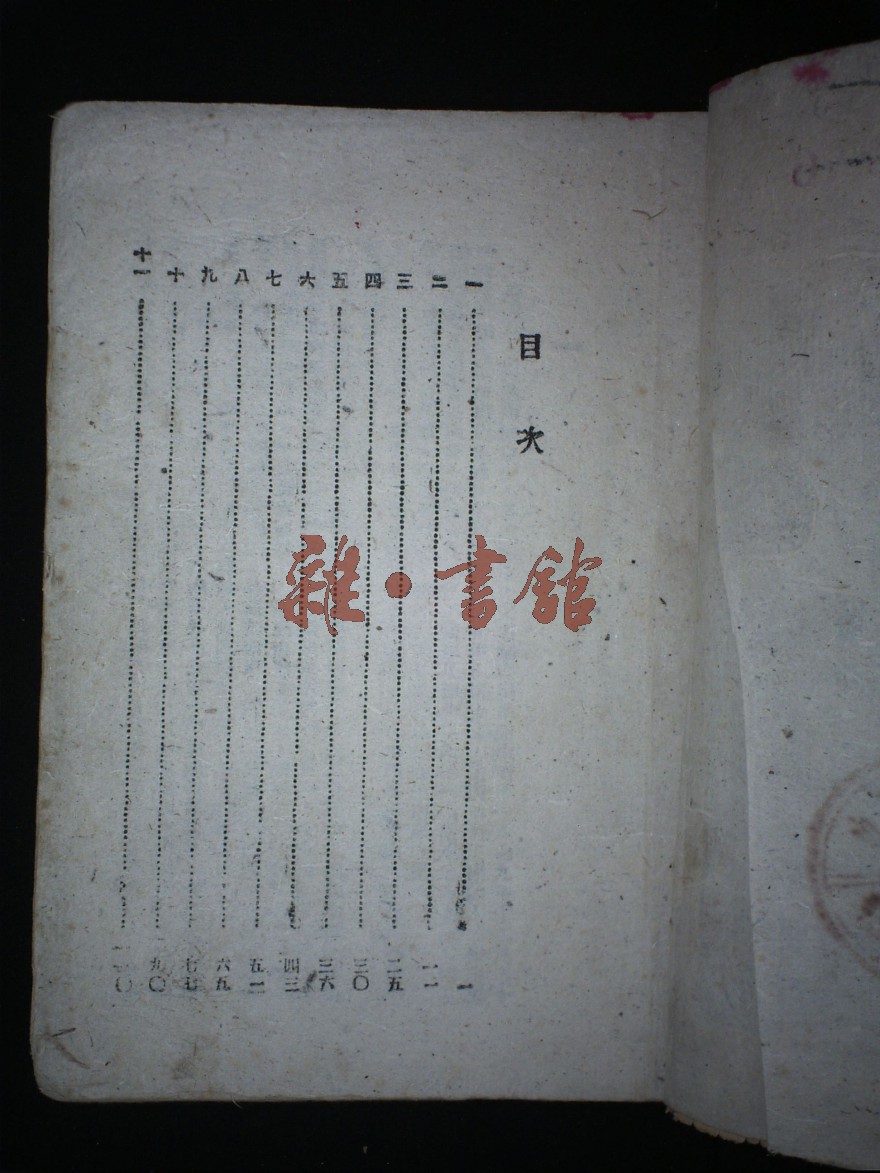 目次
一……一
二……一一
三……二五
四……三〇
五……三六
六……四三
七……五一
八……六
九……七七
十……九〇
十一……一一〇
雜·書館